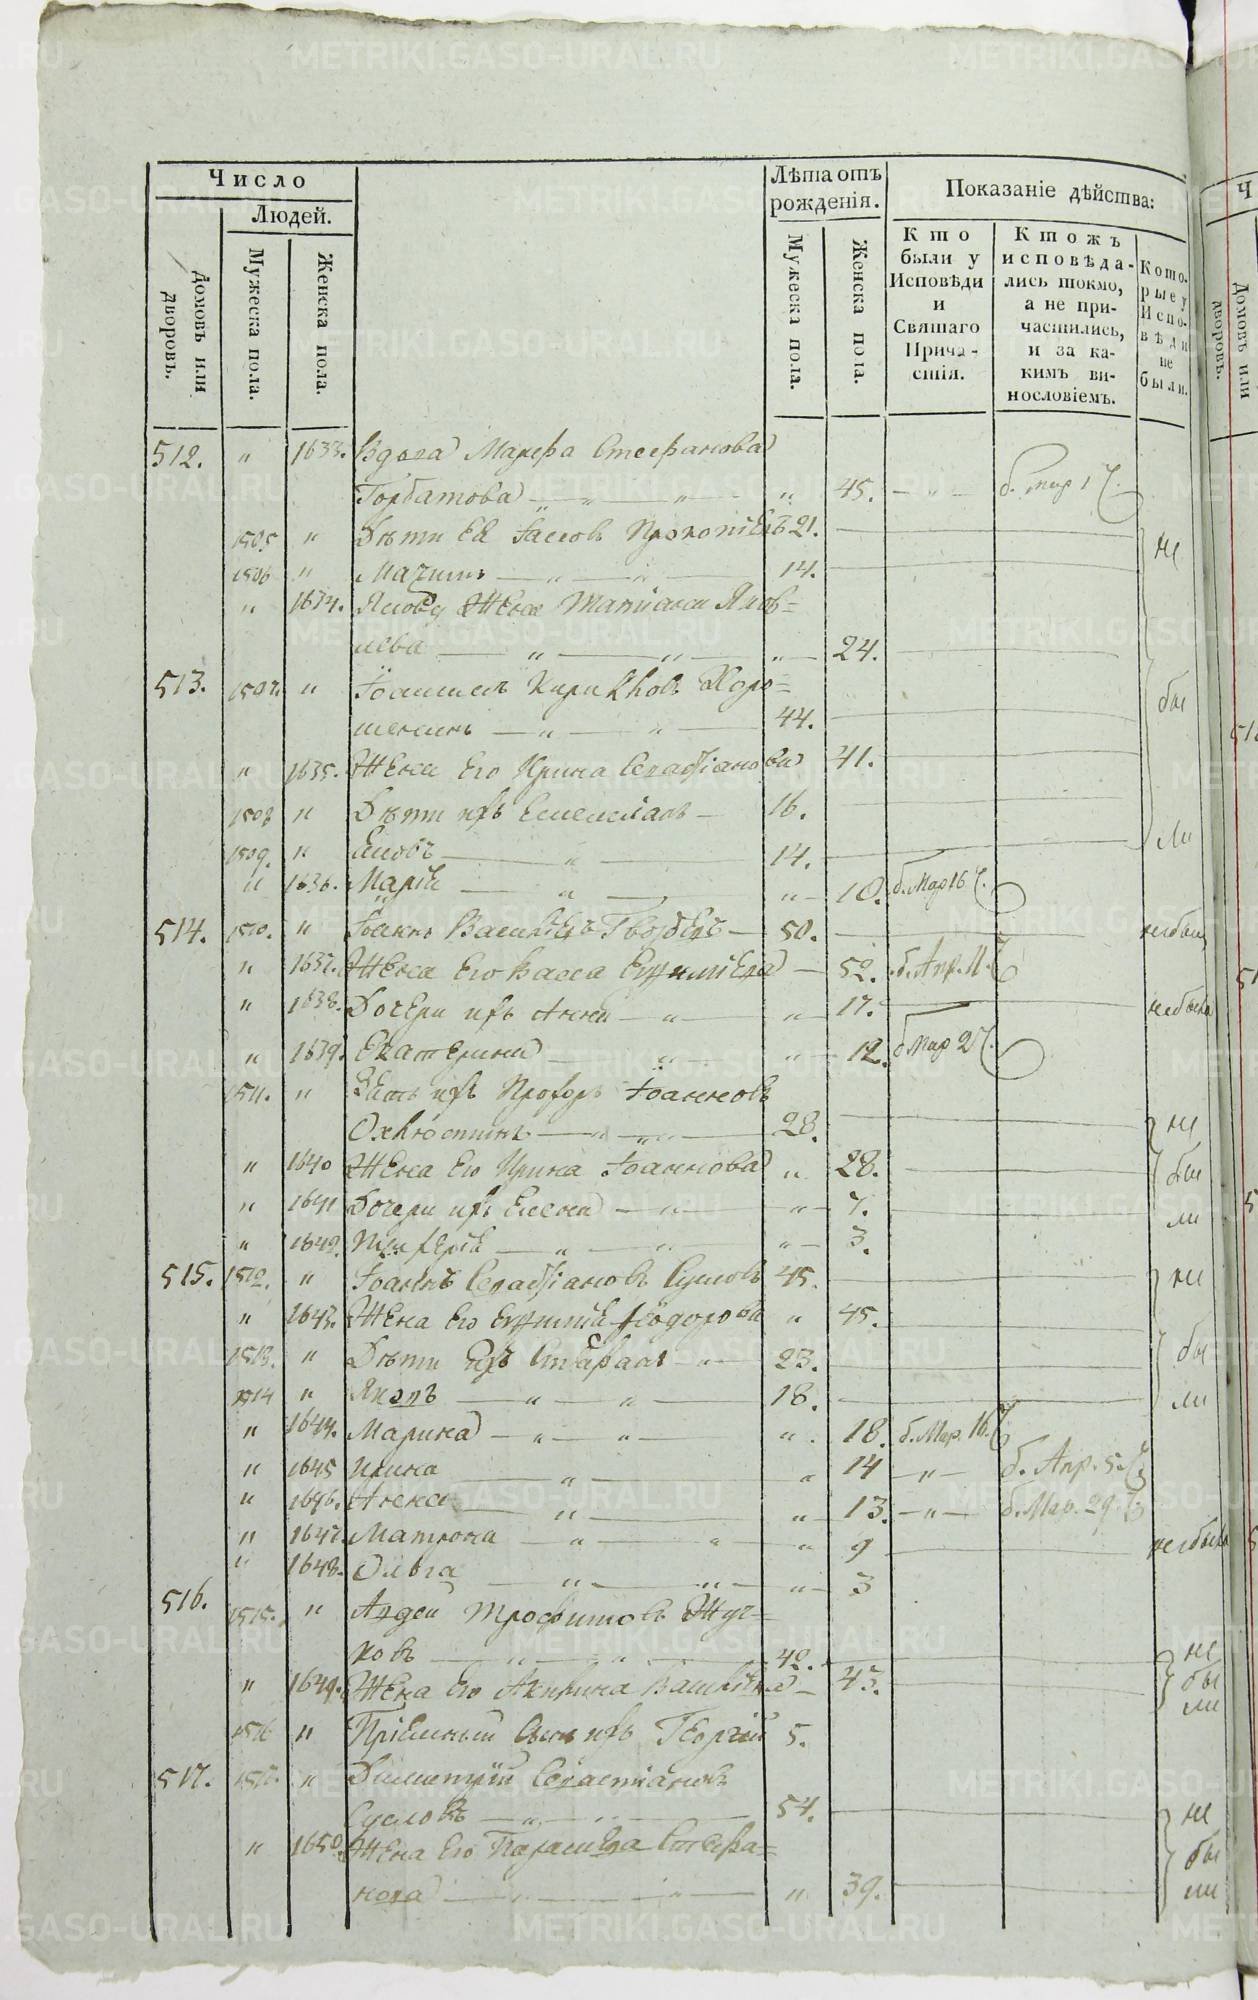 Число
Людей.
домовъ или дворовъ.
Мужеска пола.
Женска пола.
Лѣта отъ рожденія.
Мужеска пола.
Женска пола.
Показаніе дѣйства:
Кто были у Исповѣди и Святаго Причастія.
Ктожъ исповѣдались токмо, а не причастились, и за какимъ винословіемъ.
Которые у Исповѣди не были.
512. " 1633. Вдова Стефанова
Горбатова — " — " — " 45. — " — б. Мар 17.
1505. " Дѣти ея 21.
1506 " 14. не
" 1634. Жена Татіана Яков=
лева — " — " — " — 24.
513. 1507. " Хоро=
шенинъ — " — " — 44. бы
" 1635. Жена Его Ирина Севастіанова 41.
1508 " Дѣти ихъ 16.
1509. " — " — 14. ли
" 1636. Марія — " — " — 10. б. Мар 16
514. 1510. " Іоаннъ — 50. небылъ
" 1637. Жена Его Васса — 52. б. Апр. 11.
" 1638. Дочери ихъ Анна — " — " — 17. небыла
" 1639. Екатерина — " — " — 12. б Мар 27.
1511. " Зять ихъ Прохоръ Іоанновъ
Охлюстинъ — " — " — 28. не
" 1640 Жена Его Ирина Іоаннова " 28. бы
" 1641 Дочери ихъ Елена — " — " — 7. ли
" 1642. — " — " — " — 3.
515. 1512. " Іоаннъ Севастіановъ Сусловъ 45. не
" 1643. Жена Его Ѳеодорова " 45.
1513. " Дѣти ихъ Стефанъ — " — 23. бы
1514 " Яковъ — " — " — 18. ли
" 1644. Марина — " — " — " . 18. б. Мар. 16.
" 1645 Ирина — " — " 14 — " — б. Апр. 5.
" 1646. — " — " — 13. — " — б. Мар. 29.
" 1647. Матрона — " — " — " 9 небыла
" 1648. Ольга — " — " — " — 3
516. 1515. " Авдей Трофимовъ Жуч=
ковъ — " — " — 42. не
" 1649. Жена Его Акилина — 43. бы ли
1516 " Пріемный сынъ ихъ Георгій 5.
517. 1517. " Димитрій Севастіановъ
Сусловъ — " — " — 54. не
" 1650. Жена Его Параскева Стефа= бы
нова — " — " — " 39. ли